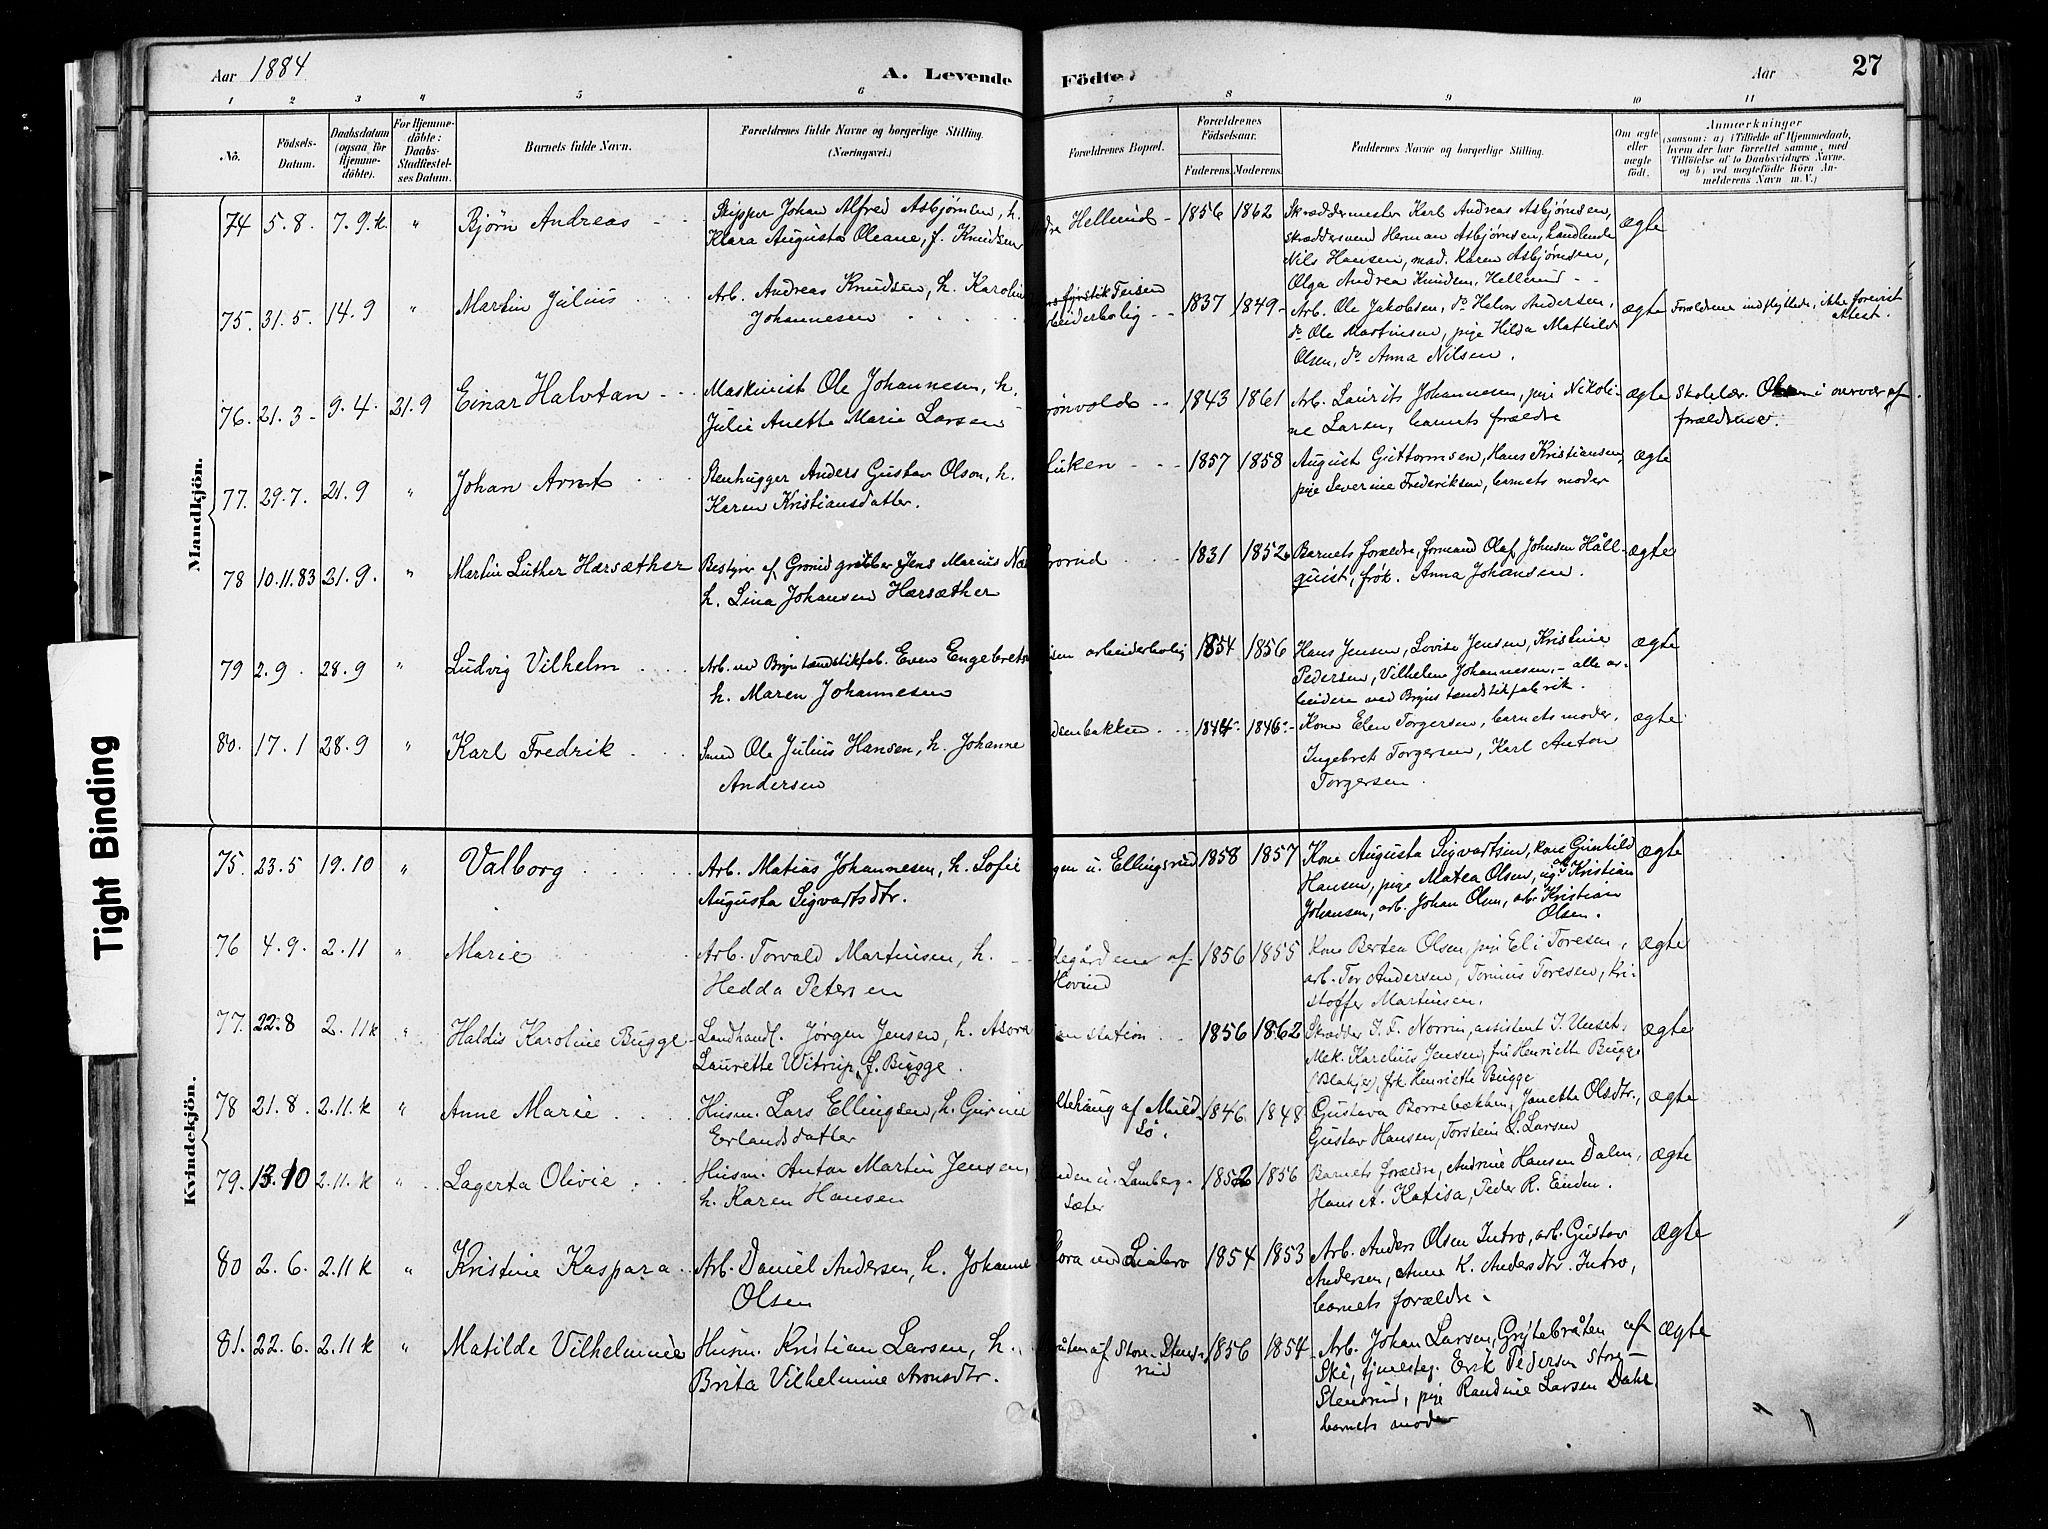 Aar 1884 A. Levende Fødte. Aar 27
1 2 3 4 5 6 7 8 9 10 11
No. Fødsels-Datum. Daabsdatum (ogsaa for Hjemme-døbte). For Hjemme-døbte: Daabs-Stadfæstel-ses Datum. Barnets fulde Navn. Forældrenes fulde Navne og borgerlige Stilling. (Næringsvei.) Forældrenes Bopæl. Forældrenes Fødselsaar. Faderens. Moderens. Faddernes Navne og borgerlige Stilling. Om ægte eller uægte født. Anmærkninger
(saasom: a) i Tilfælde af Hjemmedaab, hvem der har forrettet samme, med Tilføielse af to Daabsvidners Navne. og b) ved uegtefødte Børn An-melderens Navn m. V.)
Mandkjön.
74 5.8. 7.9.k. " Bjørn Andreas Skipper Johan Alfred Asbjørnsen, h. Hellerud 1856 1862 Skræddermester Karl Andreas Asbjørnsen, ægte
Klara Augusta Oleane, f. Knudsen skræddersvend Herman Asbjørnsen, handlende
Nils Hansen, mad. Karen Asbjørnsen,
Olga Andrea Knudsen, Hellerud
75. 31.5. 14.9 " Martin Julius Arb. Andreas Knudsen, h. Karoline Teisen 1837 1849 Arb. Ole Jakobsen, do Halvor Andersen, ægte Forældrene indflyttede, ikke forevist
Johannesen arbeiderbolig do Ole Martinsen, pige Hilda Mathilde attest.
Olsen, do Anna Nilsen.
76. 21.3 9.4. 21.9 Einar Halvtan Maskinist Ole Johannesen, h. Grønvold 1843 1861 Arb. Laurits Johannesen, pige Nikoli- ægte Skolelær. Olsen i overvær af
Julie Anette Marie Larsen ne Larsen, barnets forældre forældrene.
77. 29.7. 21.9 " Johan Arnt Stenhugger Anders Gustav Olson, h. 1857 1858 August Guttormsen, Hans Kristiansen, ægte
Karen Kristiansdatter. pige Severine Frederiksen, barnets moder
78 10.11.83 21.9. " Martin Luther Hærsæther Bestyrer af Grorud gruber Jens Marius Grorud 1831 1852 Barnets forældre, formand Olaf Johnsen Håll- ægte
h. Lina Johansen Hærsæther quist, frøk. Anna Johansen.
79 2.9. 28.9 " Ludvig Vilhelm Arb. ved Bryns tændstikfab. Even Engebretsen arbeiderbolig 1854 1856 Hans Jensen, Lovise Jensen, Kristine ægte
h. Maren Johannesen Pedersen, Vilhelm Johannesen, alle ar-
beidere ved Bryns tændstikfabrik.
80. 17.1 28.9 " Karl Fredrik Smed Ole Julius Hansen, h. Johanne 1844 1846 Kone Elen Torgersen, barnets moder, ægte
Andersen Ingebret Torgersen, Karl Anton
Torgersen.
Kvindekjön.
75. 23.5 19.10 " Valborg Arb. Matias Johannesen, h. Sofie u. Ellingsrud 1858 1857 Kone Augusta Sigvartsen, kone Gunhild ægte
Augusta Sigvartsdtr. Hansen, pige Matea Olsen, ug. Kristian
Johansen, arb. Johan Olsen, arb. Kristian
Olsen.
76 4.9. 2.11 " Marie Arb. Torvald Martinsen, h. af 1856 1855 Kone Bertea Olsen, pige Eli Toresen, ægte
Hedda Petersen Hovind arb. Tor Andersen, Tomius Toresen, Kri-
stoffer Martinsen.
77. 22.8 2.11k " Haldis Karoline Bugge Landhandl. Jørgen Jensen, h. Asora station 1856 1862 Skrædder J. F. Norrin, assistent J. Unset, ægte
Laurette Witrup, f. Bugge. Mek. Karelius Jensen, fru Henriette Bugge
(Blakjer), frk Henriette Bugge
78 21.8. 2.11.k " Anne Marie Husm. Lars Ellingsen, h. Gurine af 1846 1848 Gustava Borrebækken, Janette Olsdtr., ægte
Erlandsdatter Gustav Hansen, Torstein L. Larsen
79. 13.10 2.11.k " Lagerta Olivie Husm. Anton Martin Jensen, u. Lamberg- 1852 1856 Barnets forældre, Andrine Hansen Dalen, ægte
h. Karen Hansen sæter Hans A. Katisa, Peder R. Enden.
80 2.6. 2.11k " Kristine Kaspara Arb. Daniel Andersen, h. Johanne ved Liabro 1854 1853 Arb. Anders Olsen Intro, arb. Gustav ægte
Olsen Andersen, Anne K. Andersdtr. Intro,
barnets forældre.
81. 22.6. 2.11k " Matilde Vilhelmine Husm. Kristian Larsen, h. bråten af Store Stens- 1856 1854 Arb. Johan Larsen, Grytebråten af ægte
Brita Vilhelmine Aronsdtr. rud Ski, tjenesteg. Erik Pedersen Store
Stensrud, pige Randine Larsen Dahl.
barnets moder
Tight Binding